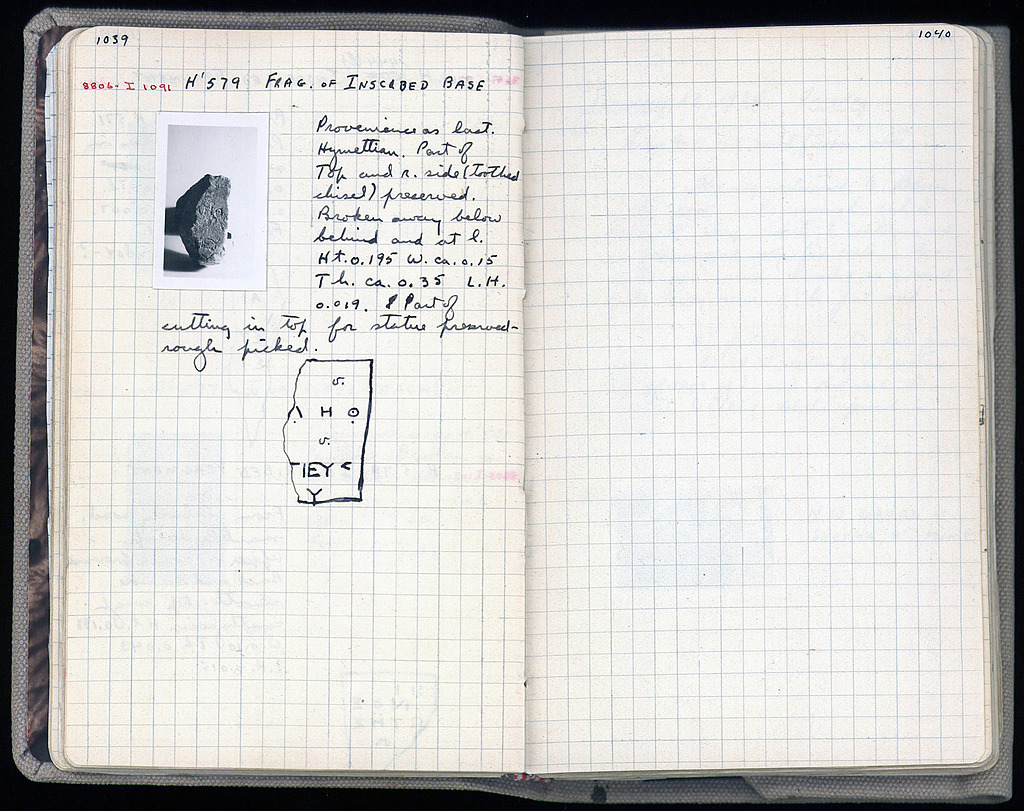 1039
1040
8806- I 1091 H'579 FRAG. OF INSCRBED BASE
Provenience as last.
Hymettian. Part of
Top and r. side (toothed
chisel) preserved.
Broken away below
behind and at l.
Ht. 0.195 W. ca. 0.15
Th. ca. 0.35 L.H.
0.019. Part of
cutting in top for statue preserved-
rough picked.
v.
Η Θ
v.
ΙΕΥ
Υ